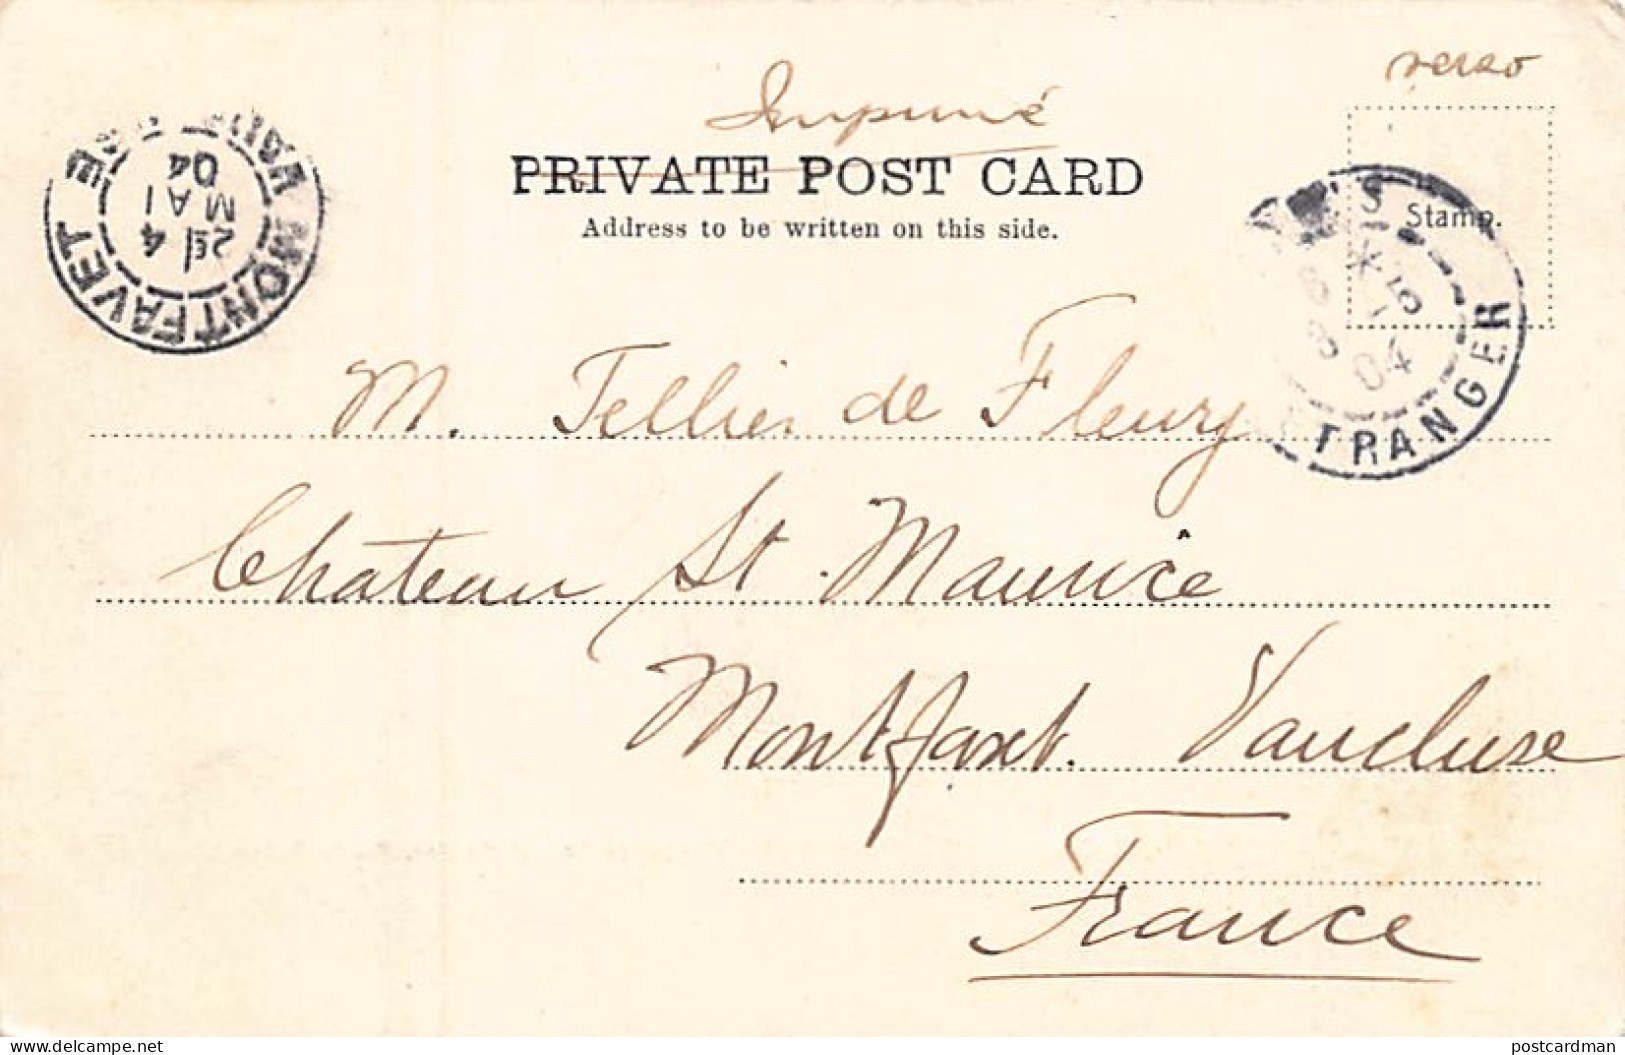 verso
Imprimé
PRIVATE POST CARD
Address to be written on this side.
Stamp.
MONTFAVET
2E 4
MAI
04
ETRANGER
04
M. Tellier de Fleury
Chateau St. Maurice
Montfavet. Vaucluse
France
www.delcampe.net
postcardman